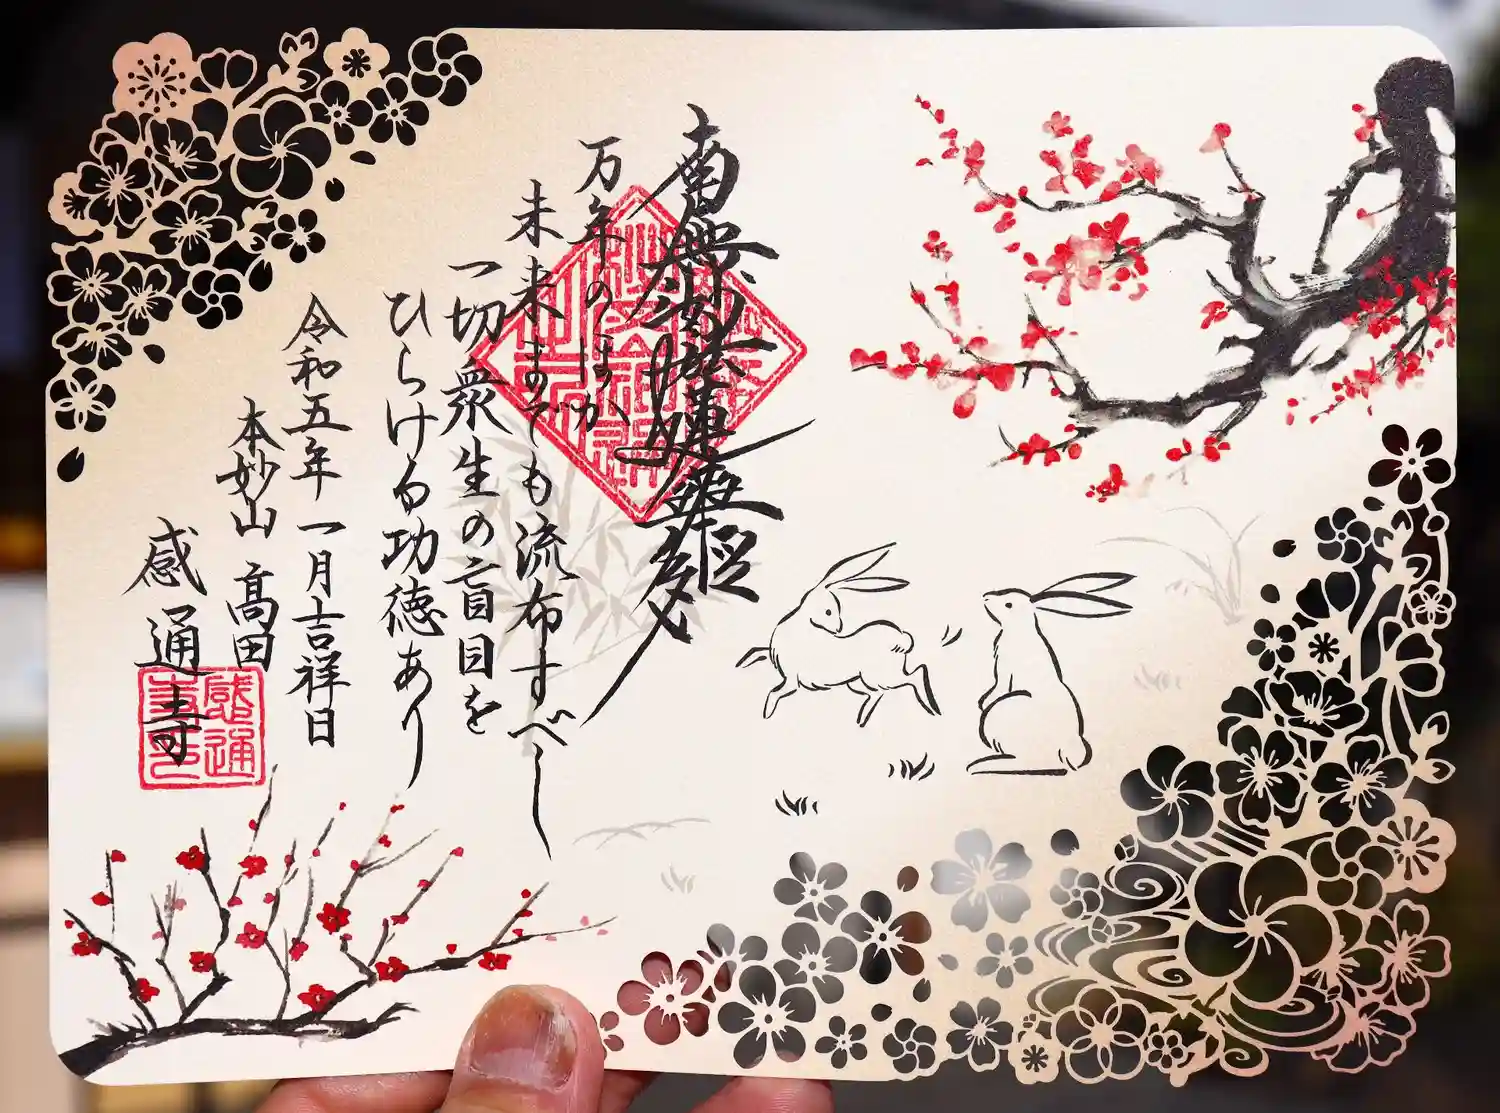 南無妙法蓮華経
万年のほか
未来までも流布すべし
一切衆生の盲目を
ひらける功徳あり
令和五年一月吉祥日
本妙山 髙田
感通寺
感通寺印